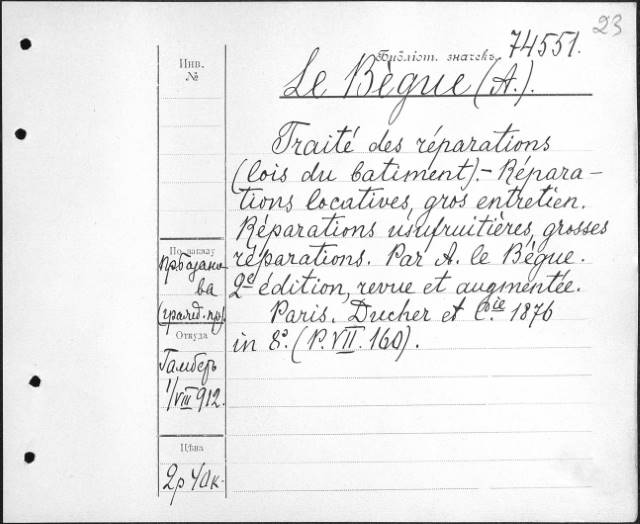 23
Библіот. значекъ 74551.
Le Bègue (A.).
Traité des réparations
(lois du batiment).- Répara-
tions locatives, gros entretien.
Réparations usufruitières, grosses
réparations. Par A. le Bègue.
2e édition, revue et augmentée.
Paris. Ducher et Cie. 1876
in 8º. (P. VII. 160).
Инв.
№
По заказу
пр. Базано-
ва
(гражд. пр.)
Откуда
Гамберъ
1/VIII 912.
Цѣна
2р 40к.